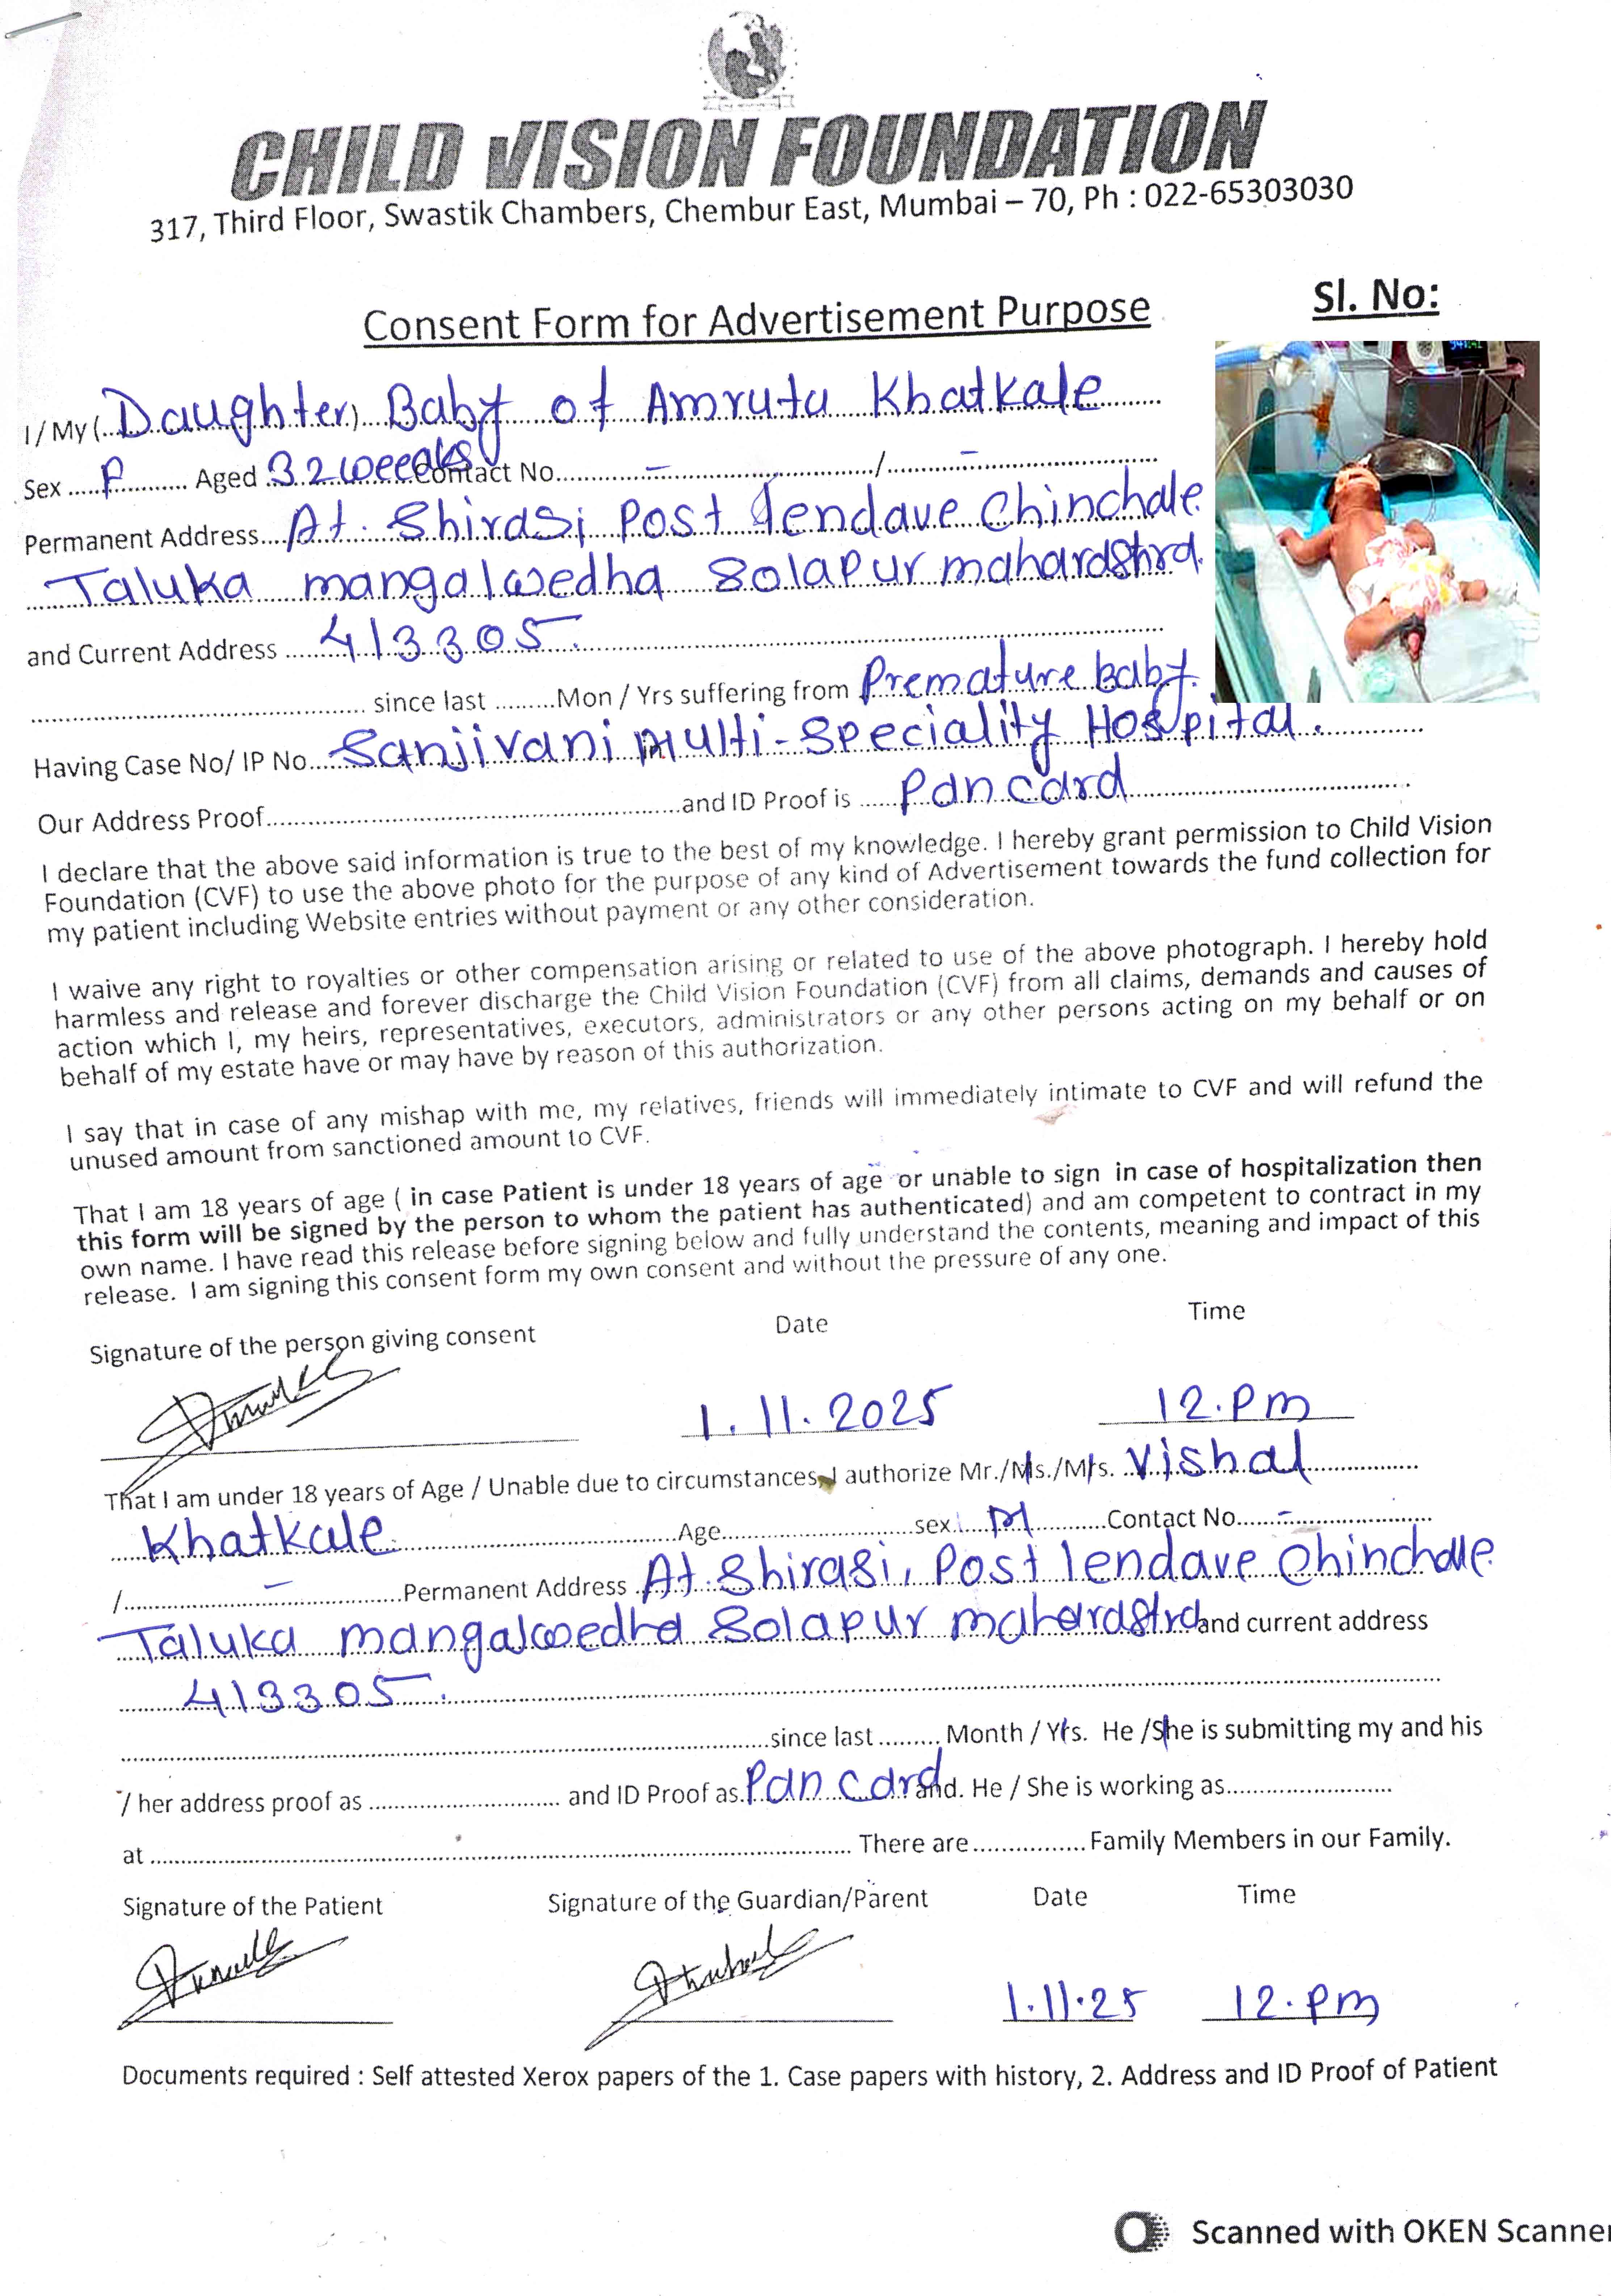 CHILD VISION FOUNDATION
317, Third Floor, Swastik Chambers, Chembur East, Mumbai – 70, Ph : 022-65303030
Consent Form for Advertisement Purpose
Sl. No:
I / My (Daughter) Baby of Amruta Khatkale
Sex F Aged 32 weeks Contact No. – / –
Permanent Address At. Shirasi Post lendave Chinchale.
Taluka mangalwedha Solapur maharashtra.
and Current Address 413305.
since last ......... Mon / Yrs suffering from Premature baby.
Having Case No/ IP No. Sanjivani multi-speciality Hospital.
Our Address Proof and ID Proof is Pan card
I declare that the above said information is true to the best of my knowledge. I hereby grant permission to Child Vision
Foundation (CVF) to use the above photo for the purpose of any kind of Advertisement towards the fund collection for
my patient including Website entries without payment or any other consideration.
I waive any right to royalties or other compensation arising or related to use of the above photograph. I hereby hold
harmless and release and forever discharge the Child Vision Foundation (CVF) from all claims, demands and causes of
action which I, my heirs, representatives, executors, administrators or any other persons acting on my behalf or on
behalf of my estate have or may have by reason of this authorization.
I say that in case of any mishap with me, my relatives, friends will immediately intimate to CVF and will refund the
unused amount from sanctioned amount to CVF.
That I am 18 years of age ( in case Patient is under 18 years of age or unable to sign in case of hospitalization then
this form will be signed by the person to whom the patient has authenticated) and am competent to contract in my
own name. I have read this release before signing below and fully understand the contents, meaning and impact of this
release. I am signing this consent form my own consent and without the pressure of any one.
Signature of the person giving consent Date Time
1.11.2025 12.Pm
That I am under 18 years of Age / Unable due to circumstances, I authorize Mr./Ms./Mrs. Vishal
Khatkale. Age sex M Contact No. –
/ – Permanent Address At. Shirasi, Post lendave Chinchale.
Taluka mangalwedha Solapur maharashtra and current address
413305.
since last ......... Month / Yrs. He /She is submitting my and his
/ her address proof as and ID Proof as Pan card and. He / She is working as
at There are Family Members in our Family.
Signature of the Patient Signature of the Guardian/Parent Date Time
1.11.25 12.pm
Documents required : Self attested Xerox papers of the 1. Case papers with history, 2. Address and ID Proof of Patient
Scanned with OKEN Scanner